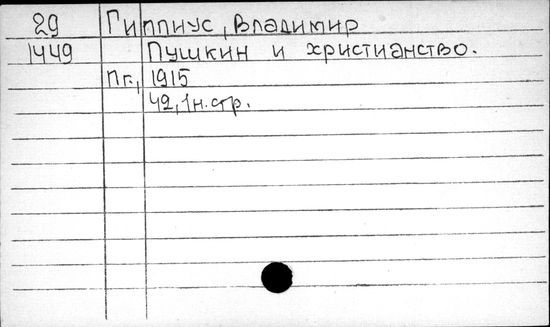 29 Гиппиус, Владимир
1449 Пушкин и христианство.
Пг., 1915
42, 1н. стр.